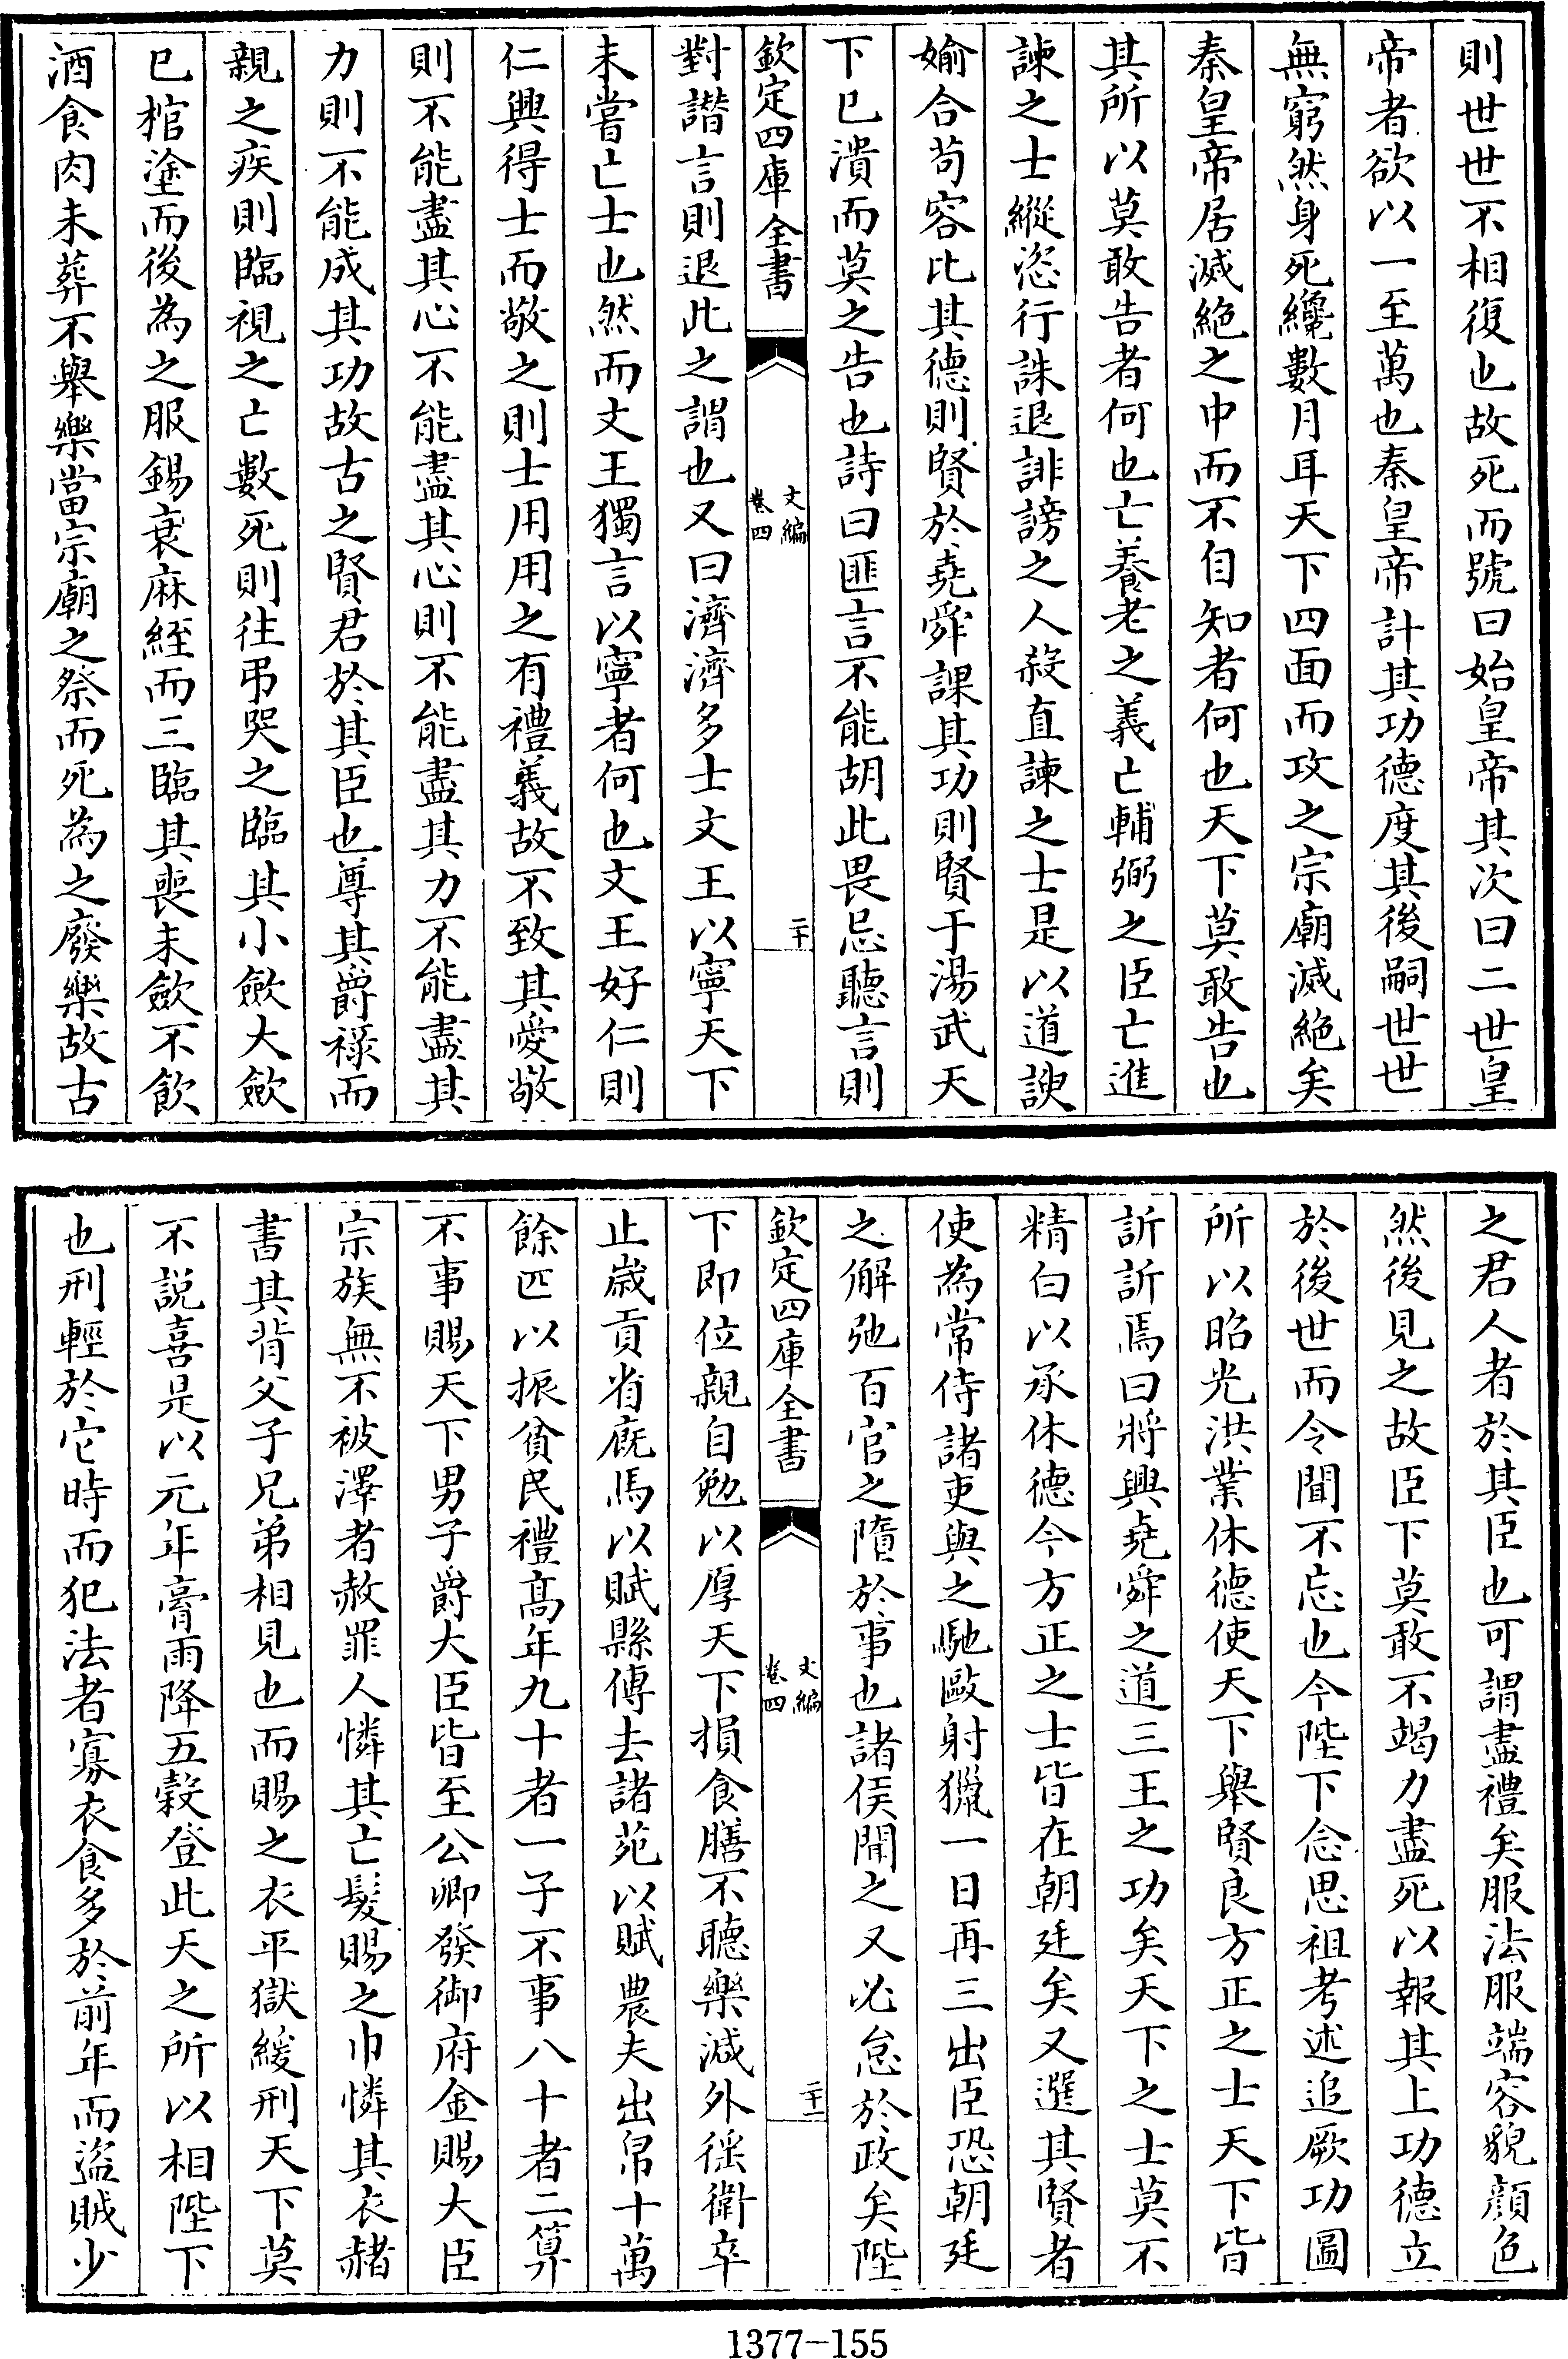 則世世不相復也故死而號曰始皇帝其次曰二世皇
帝者欲以一至萬也秦皇帝計其功德度其後嗣世世
無窮然身死纔數月耳天下四面而攻之宗廟滅絶矣
秦皇帝居滅絶之中而不自知者何也天下莫敢告也
其所以莫敢告者何也亡養老之義亡輔弼之臣亡進
諫之士縱恣行誅退誹謗之人殺直諫之士是以道諛
媮合苟容比其德則賢於堯舜課其功則賢于湯武天
下已潰而莫之告也詩曰匪言不能胡此畏忌聽言則
欽定四庫全書
文編
卷四
二十
對譖言則退此之謂也又曰濟濟多士文王以寧天下
未嘗亡士也然而文王獨言以寧者何也文王好仁則
仁興得士而敬之則士用用之有禮義故不致其愛敬
則不能盡其心不能盡其心則不能盡其力不能盡其
力則不能成其功故古之賢君於其臣也尊其爵祿而
親之疾則臨視之亡數死則往弔哭之臨其小歛大歛
已棺塗而後為之服錫衰麻絰而三臨其喪未歛不飲
酒食肉未葬不舉樂當宗廟之祭而死為之廢樂故古
之君人者於其臣也可謂盡禮矣服法服端容貌顔色
然後見之故臣下莫敢不竭力盡死以報其上功德立
於後世而令聞不忘也今陛下念思祖考述追厥功圖
所以昭光洪業休德使天下舉賢良方正之士天下皆
訢訢焉曰將興堯舜之道三王之功矣天下之士莫不
精白以承休德今方正之士皆在朝廷矣又選其賢者
使為常侍諸吏與之馳敺射獵一日再三出臣恐朝廷
之懈弛百官之隳於事也諸侯聞之又必怠於政矣陛
欽定四庫全書
文編
卷四
二十一
下即位親自勉以厚天下損食膳不聽樂減外徭衛卒
止歲貢省廐馬以賦縣傳去諸苑以賦農夫出帛十萬
餘匹以振貧民禮高年九十者一子不事八十者二算
不事賜天下男子爵大臣皆至公卿發御府金賜大臣
宗族無不被澤者赦罪人憐其亡髮賜之巾憐其衣赭
書其背父子兄弟相見也而賜之衣平獄緩刑天下莫
不説喜是以元年膏雨降五穀登此天之所以相陛下
也刑輕於它時而犯法者寡衣食多於前年而盜賊少
1377-155